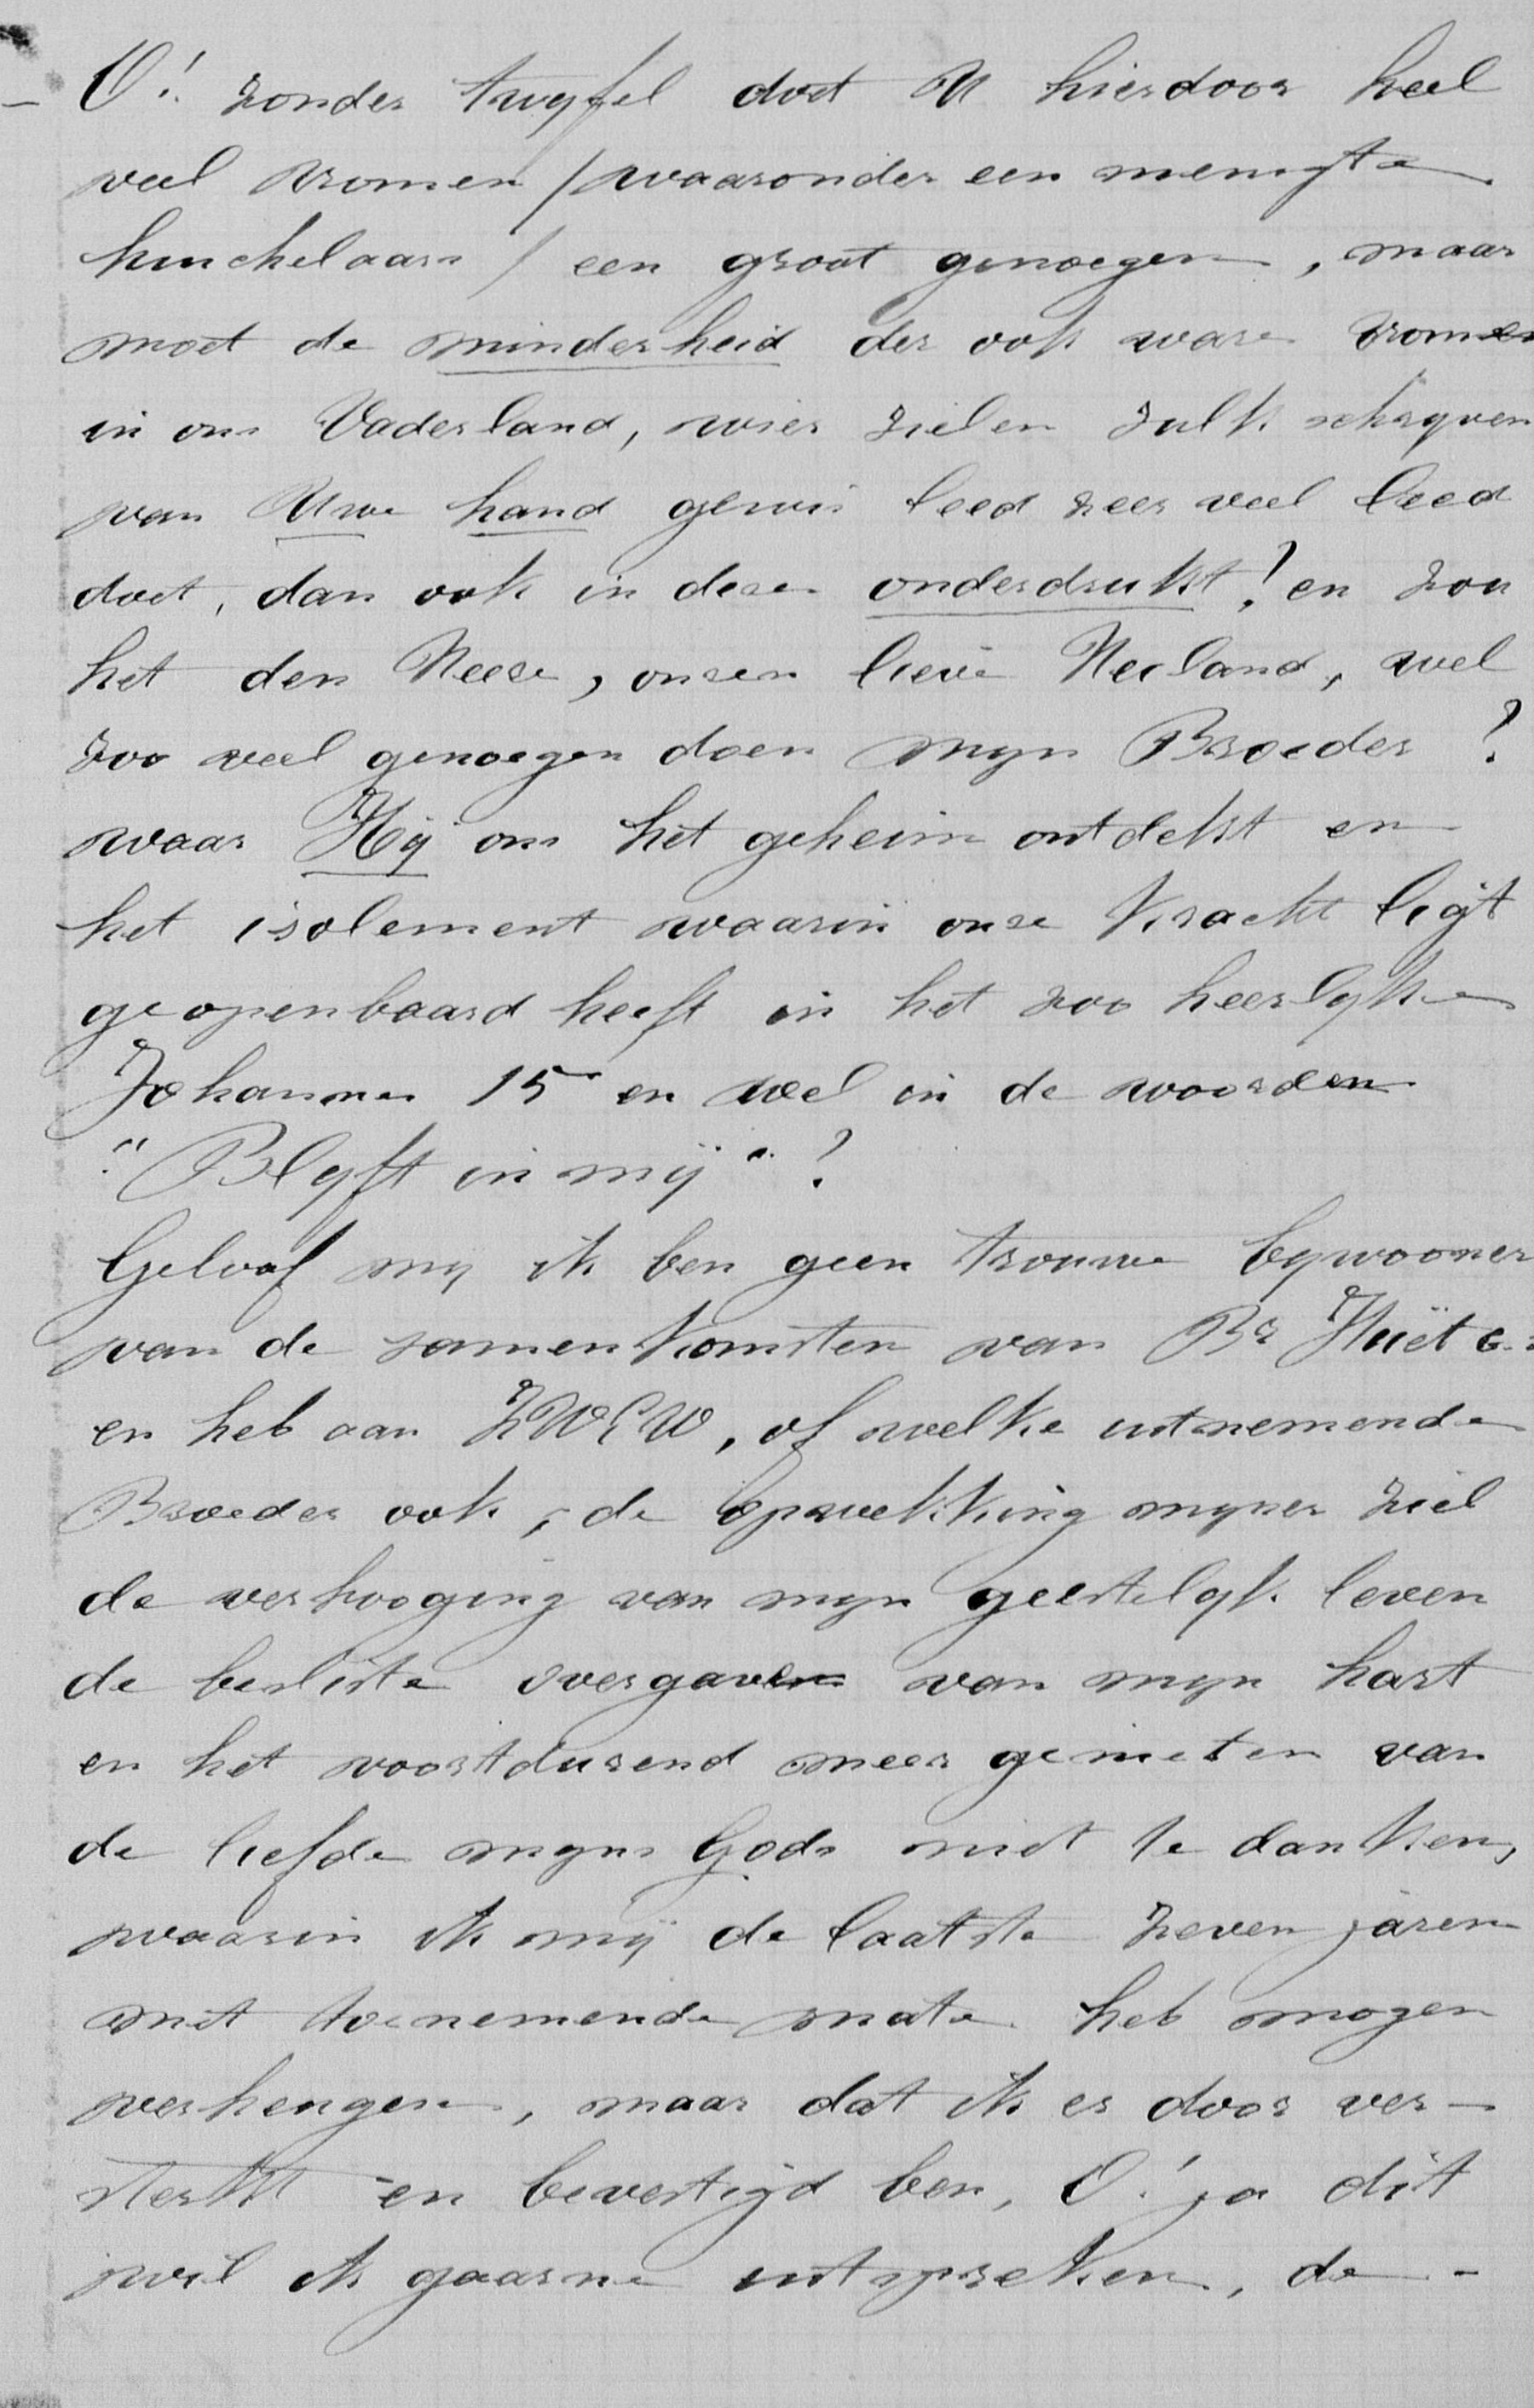 O! zonder twyfel doet U hierdoor heel
veel vromen / waaronder een menigte
huichelaars / een groot genoegen, maar
moet de minderheid der ook ware vromen
in ons Vaderland, wier zielen zulk schryven
van Uwe hand gewis leed zeer veel leed
doet, dan ook in dezen onderdrukt! en zou
het den Heere, onzen lieve Heiland, wel
zoo veel genoegen doen myn Broeder?
waar Hij ons het geheim ontdekt en
het isolement waarin onze Kracht ligt
geopenbaard heeft in het zoo heerlyke
Johannes 15 en wel in de woorden
"Blyft in mij"?
Geloof my ik ben geen trouwe bywooner
van de samenkomsten van Br Huët
en heb aan ZWEW, of welke uitnemende
Broeder ook, de opwekking myner ziel
de verhooging van myn geestelyk leven
de besliste overgaven van myn hart
en het voortdurend meer genieten van
de liefde myns Gods niet te danken,
waarin ik mij de laatste zeven jaren
met toenemende mate heb mogen
verheugen, maar dat ik er door ver-
sterkt en bevestigd ben, O! ja dit
wil ik gaarne uitspreken, de-